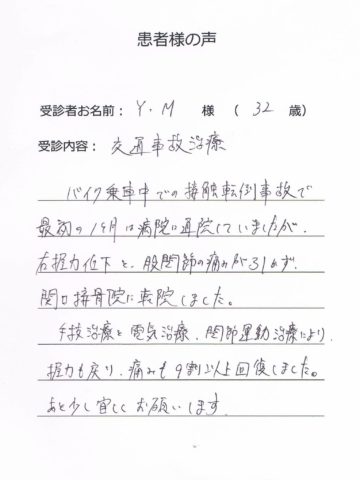 患者様の声
受診者お名前： Y.M 様 （ 32 歳）
受診内容： 交通事故治療
バイク乗車中での接触転倒事故で
最初の1ヶ月は病院に通院していましたが、
右握力低下と、股関節の痛みが引かず、
関口接骨院に転院しました。
手技治療と電気治療、関節運動治療により、
握力も戻り、痛みも9割以上回復しました。
あと少し宜しくお願いします。